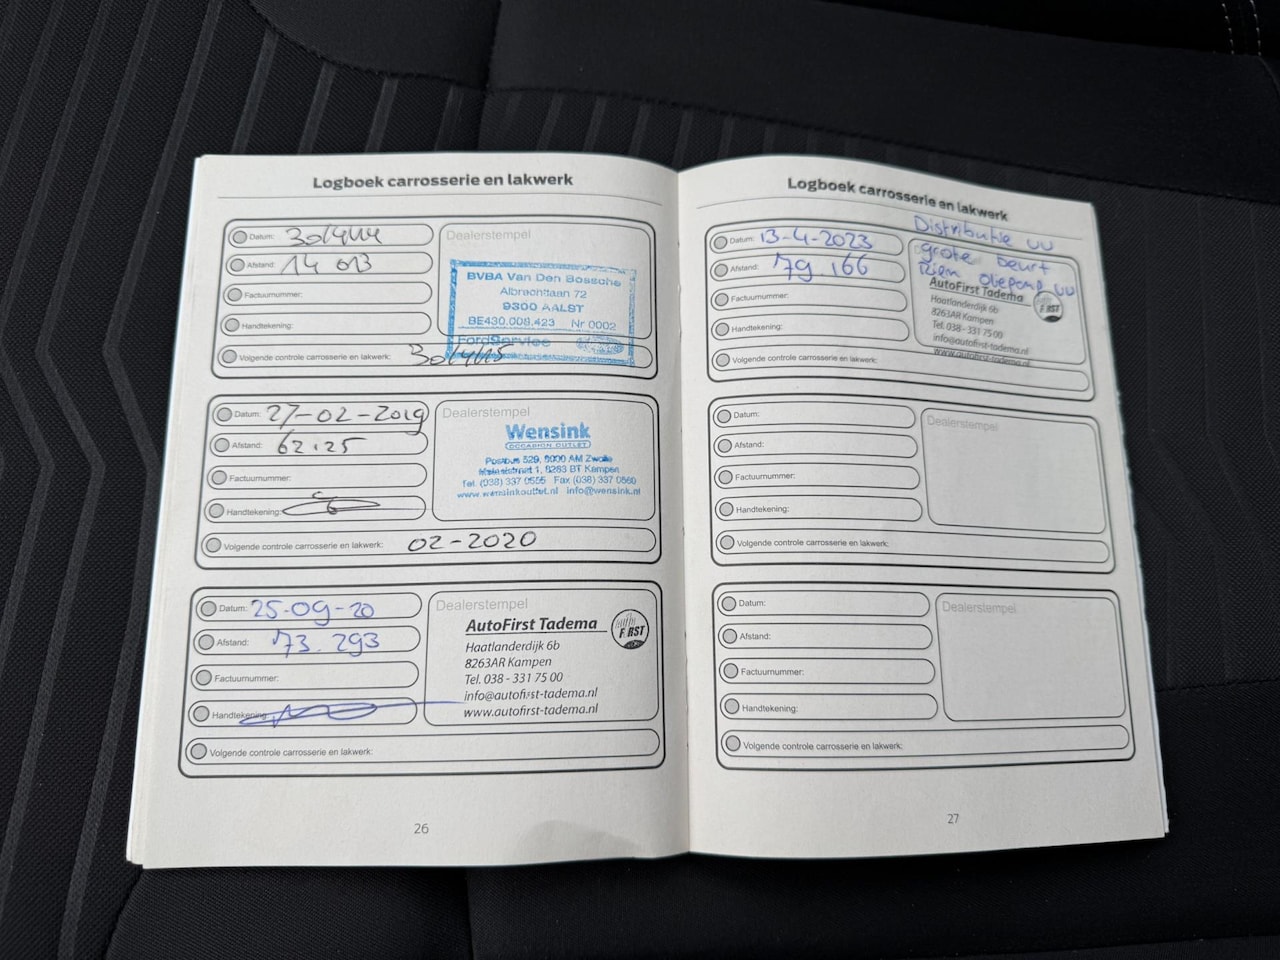 Logboek carrosserie en lakwerk
Datum: 30/4/14
Afstand: 14 013
Factuurnummer:
Handtekening:
Volgende controle carrosserie en lakwerk: 30/4/15
Dealerstempel
BVBA Van Den Bossche
Albrechtlaan 72
9300 AALST
BE430.008.423 Nr 0002
FordService
Datum: 27-02-2019
Afstand: 62.125
Factuurnummer:
Handtekening:
Volgende controle carrosserie en lakwerk: 02-2020
Dealerstempel
Wensink
OCCASION OUTLET
Postbus 529, 8000 AM Zwolle
1, 8263 BT Kampen
Tel. (038) 337 0555 Fax (038) 337 0560
www.wensinkoutlet.nl info@wensink.nl
Datum: 25-09-20
Afstand: 73.293
Factuurnummer:
Handtekening:
Volgende controle carrosserie en lakwerk:
Dealerstempel
AutoFirst Tadema
FIRST
Haatlanderdijk 6b
8263AR Kampen
Tel. 038 - 331 75 00
info@autofirst-tadema.nl
www.autofirst-tadema.nl
26
Logboek carrosserie en lakwerk
Datum: 13-4-2023
Afstand: 79 166
Factuurnummer:
Handtekening:
Volgende controle carrosserie en lakwerk:
Distributie vv
grote beurt
Riem oliepomp vv
AutoFirst Tadema
FIRST
Haatlanderdijk 6b
8263AR Kampen
Tel. 038 - 331 75 00
info@autofirst-tadema.nl
www.autofirst-tadema.nl
Datum:
Afstand:
Factuurnummer:
Handtekening:
Volgende controle carrosserie en lakwerk:
Dealerstempel
Datum:
Afstand:
Factuurnummer:
Handtekening:
Volgende controle carrosserie en lakwerk:
Dealerstempel
27